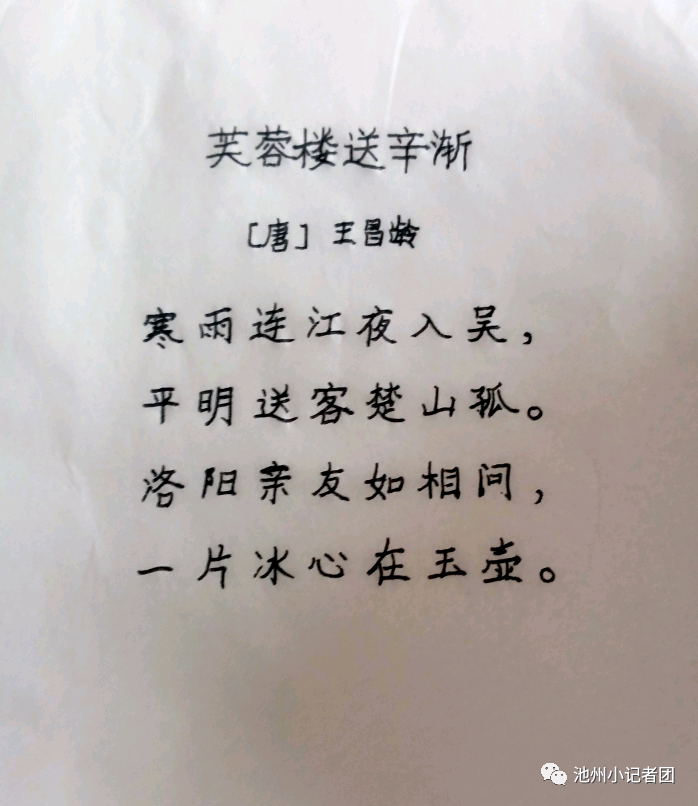 芙蓉楼送辛渐
［唐］王昌龄
寒雨连江夜入吴，
平明送客楚山孤。
洛阳亲友如相问，
一片冰心在玉壶。
池州小记者团